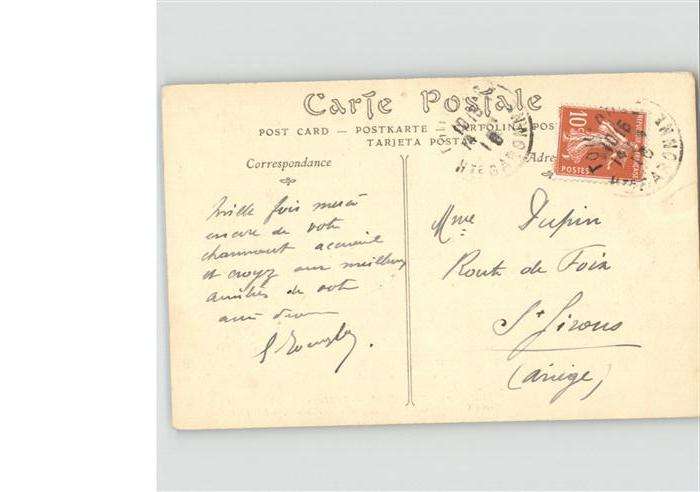 Carte Postale
POST CARD — POSTKARTE — CARTOLINA POST
TARJETA POSTA
Correspondance
Adre
10c
POSTES
Mille fois merci
encore de votre
charmant accueil
et croyez aux meilleurs
amitiés de votre
Mme Dupin
Route de Foix
St Girons
(Ariège)